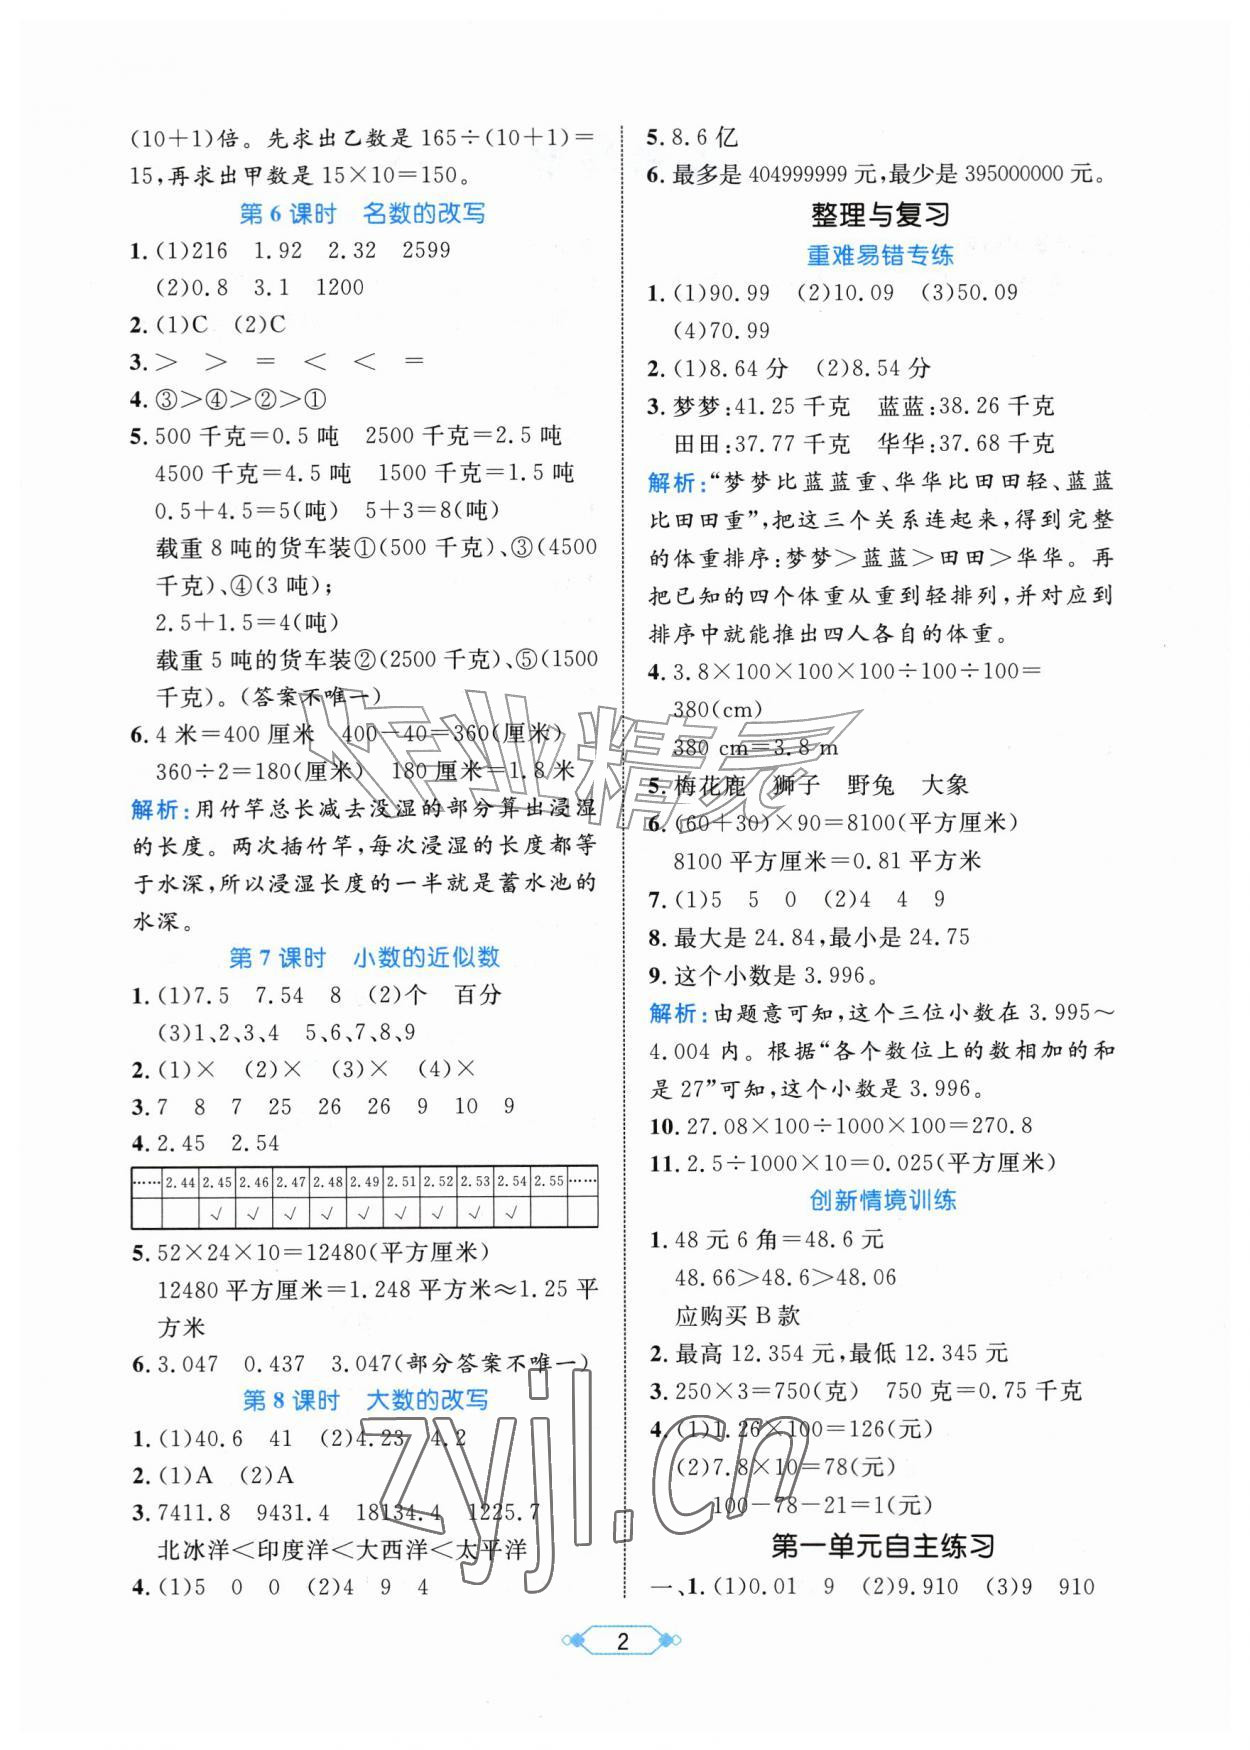 (10+1)倍。先求出乙数是165÷(10+1)=
15,再求出甲数是15×10=150。
第6课时 名数的改写
1. (1)216 1.92 2.32 2599
(2)0.8 3.1 1200
2. (1)C (2)C
3. > > = < < =
4. ③>④>②>①
5. 500千克=0.5吨 2500千克=2.5吨
4500千克=4.5吨 1500千克=1.5吨
0.5+4.5=5(吨) 5+3=8(吨)
载重8吨的货车装①(500千克)、③(4500
千克)、④(3吨);
2.5+1.5=4(吨)
载重5吨的货车装②(2500千克)、⑤(1500
千克)。(答案不唯一)
6. 4米=400厘米 400-40=360(厘米)
360÷2=180(厘米) 180厘米=1.8米
解析:用竹竿总长减去没湿的部分算出浸湿
的长度。两次插竹竿,每次浸湿的长度都等
于水深,所以浸湿长度的一半就是蓄水池的
水深。
第7课时 小数的近似数
1. (1)7.5 7.54 8 (2)个 百分
(3)1、2、3、4 5、6、7、8、9
2. (1)× (2)× (3)× (4)×
3. 7 8 7 25 26 26 9 10 9
4. 2.45 2.54
…… 2.44 2.45 2.46 2.47 2.48 2.49 2.51 2.52 2.53 2.54 2.55 ……
√ √ √ √ √ √ √ √ √
5. 52×24×10=12480(平方厘米)
12480平方厘米=1.248平方米≈1.25平
方米
6. 3.047 0.437 3.047(部分答案不唯一)
第8课时 大数的改写
1. (1)40.6 41 (2)4.23 4.2
2. (1)A (2)A
3. 7411.8 9431.4 18134.4 1225.7
北冰洋<印度洋<大西洋<太平洋
4. (1)5 0 0 (2)4 9 4
5. 8.6亿
6. 最多是404999999元,最少是395000000元。
整理与复习
重难易错专练
1. (1)90.99 (2)10.09 (3)50.09
(4)70.99
2. (1)8.64分 (2)8.54分
3. 梦梦:41.25千克 蓝蓝:38.26千克
田田:37.77千克 华华:37.68千克
解析:“梦梦比蓝蓝重、华华比田田轻、蓝蓝
比田田重”,把这三个关系连起来,得到完整
的体重排序:梦梦>蓝蓝>田田>华华。再
把已知的四个体重从重到轻排列,并对应到
排序中就能推出四人各自的体重。
4. 3.8×100×100×100÷100÷100=
380(cm)
380 cm=3.8 m
5. 梅花鹿 狮子 野兔 大象
6. (60+30)×90=8100(平方厘米)
8100平方厘米=0.81平方米
7. (1)5 5 0 (2)4 4 9
8. 最大是24.84,最小是24.75
9. 这个小数是3.996。
解析:由题意可知,这个三位小数在3.995~
4.004内。根据“各个数位上的数相加的和
是27”可知,这个小数是3.996。
10. 27.08×100÷1000×100=270.8
11. 2.5÷1000×10=0.025(平方厘米)
创新情境训练
1. 48元6角=48.6元
48.66>48.6>48.06
应购买B款
2. 最高12.354元,最低12.345元
3. 250×3=750(克) 750克=0.75千克
4. (1)1.26×100=126(元)
(2)7.8×10=78(元)
100-78-21=1(元)
第一单元自主练习
一、1. (1)0.01 9 (2)9.910 (3)9 910
2
作业精灵
zyjl.cn